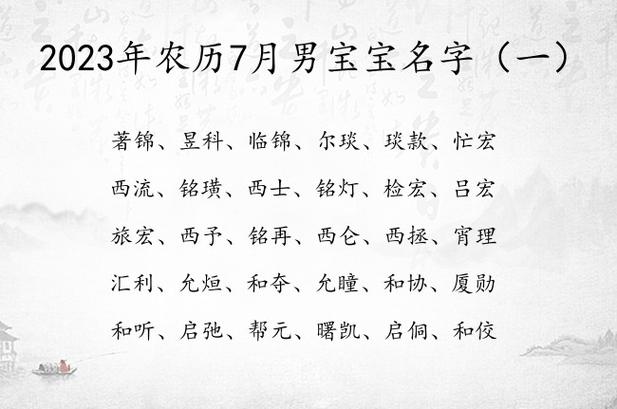 2023年农历7月男宝宝名字（一）
著锦、昱科、临锦、尔琰、琰款、忙宏
西流、铭璜、西士、铭灯、检宏、吕宏
旅宏、西予、铭再、西仑、西拯、宵理
汇利、允烜、和夺、允瞳、和协、厦勋
和听、启弛、帮元、曙凯、启侗、和佼